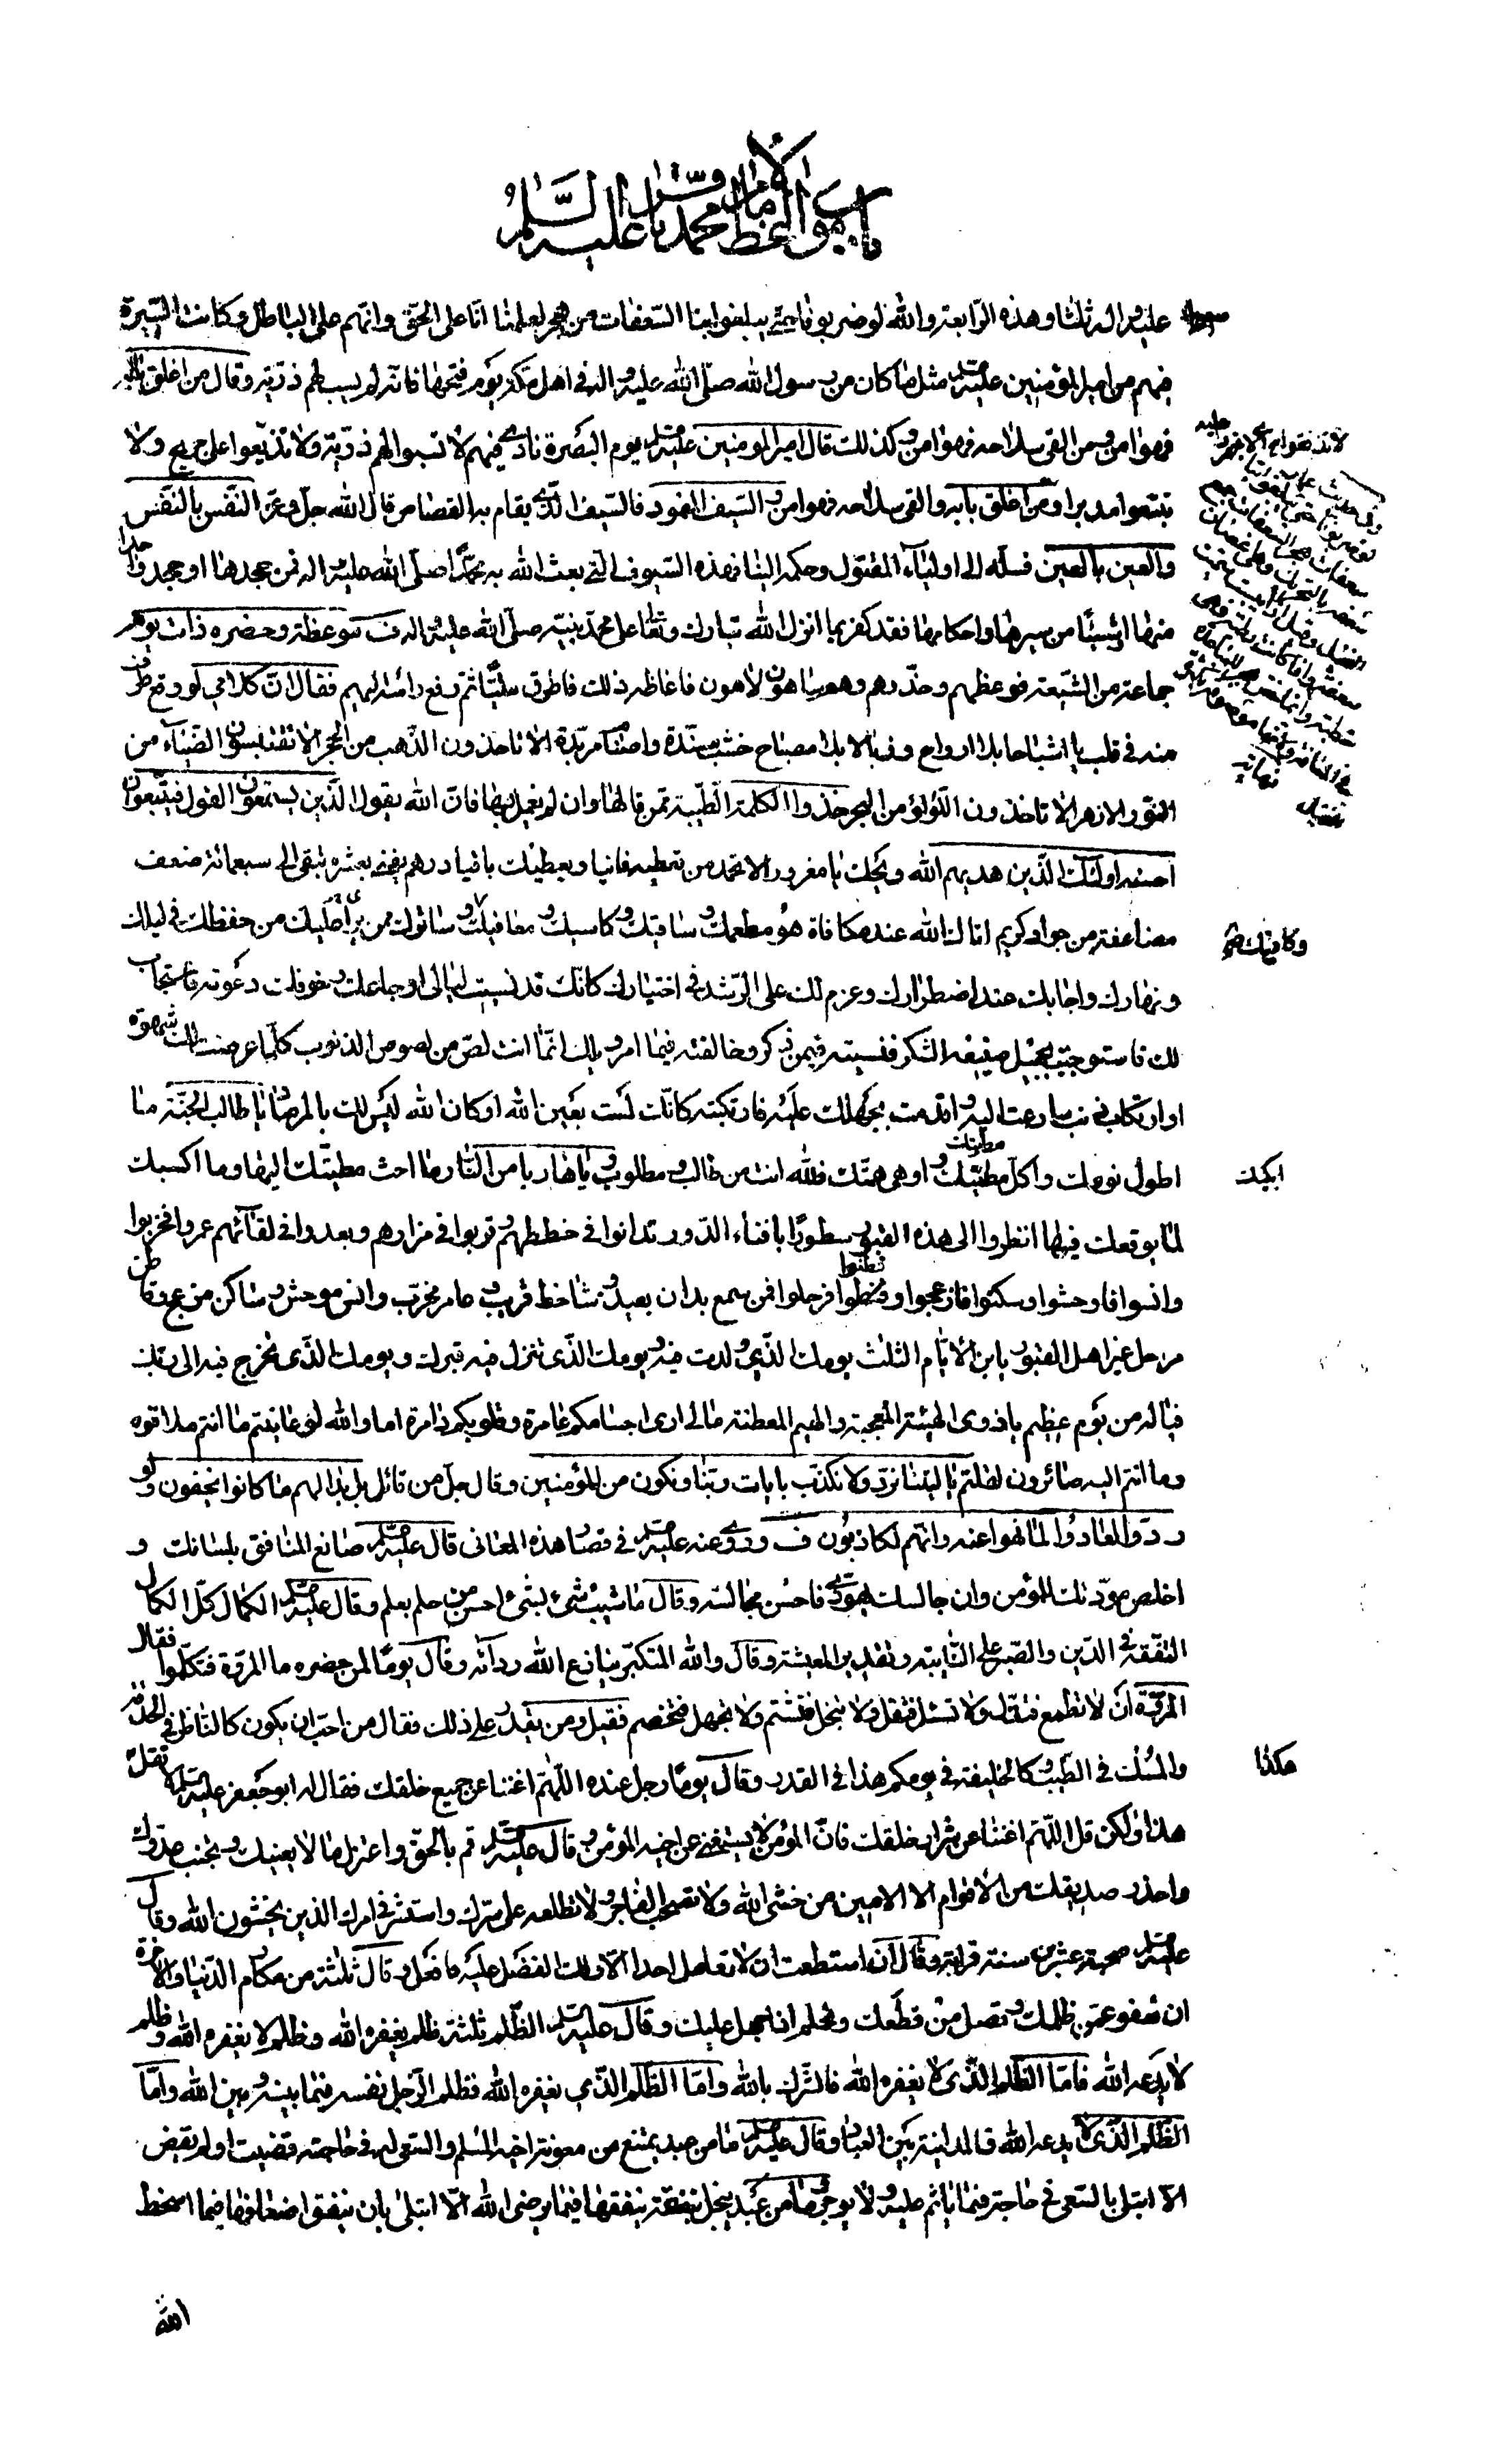 باب مواعظ الامام محمد باقر عليه السلام
عليه و اله ثلثا و هذه الرابعة و الله لو ضربونا حتى يبلغوا بنا السعفات من هجر لعلمنا انا على الحق و انهم على الباطل و كانت السيرة
فيهم من امير المؤمنين عليه السلم مثل ما كان من رسول الله صلى الله عليه و اله في اهل مكة يوم فتحها فانه لم يسب لهم ذرية و قال من اغلق بابه
فهو امن و من القى سلاحه فهو امن و كذلك قال امير المومنين عليه السلم يوم البصرة نادى فيهم لا تسبوا لهم ذرية و لا تذففوا على جريح و لا
تتبعوا مدبرا و من اغلق بابه و القى سلاحه فهو امن و السيف المغمود فالسيف الذي يقام به القصاص قال الله جل و عز النفس بالنفس
و العين بالعين فسله الى اولياء المقتول و حكمه الينا فهذه السيوف التي بعث الله به محمدا صلى الله عليه و اله فمن جحدها او جحد واحدا
منها او شيئا من سيرها و احكامها فقد كفر بما انزل الله تبارك و تعالى على محمد نبيه صلى الله عليه و اله ف موعظة و حضره ذات يوم
جماعة من الشيعة فوعظهم و حذرهم و هم ساهون لاهون فاغاظه ذلك فاطرق مليا ثم رفع راسه اليهم فقال ان كلامي لو وقع طرف
منه في قلب يا اشباحا بلا ارواح و ذبالا بلا مصباح خشب مسندة و اصنام مريدة الا تاخذون الذهب من الحجر الا تقتبسون الضياء من
النور الازهر الا تاخذون اللؤلؤ من البحر خذوا الكلمة الطيبة ممن قالها و ان لم يعمل بها فان الله يقول الذين يستمعون القول فيتبعون
احسنه اولئك الذين هديهم الله ويحك يا مغرور الا تحمد من تعطيه فانيا و يعطيك باقيا درهم يفنى بعشرة تبقى الى سبعمائة ضعف
مضاعفة من جواد كريم اتاك الله عند مكافاة هو مطعمك و ساقيك و كاسيك و معافيك و ساترك ممن يراعيك من حفظك في ليلك
و نهارك و اجابك عند اضطرارك و عزم لك على الرشد في اختيارك كانك قد نسيت ليالي اوجاعك و خوفك دعوته فاستجاب
لك فاستوجب بجميل صنيعه الشكر فنسيته فيمن ذكر و خالفته فيما امر ويلك انما انت لص من لصوص الذنوب كلما عرضت لك شهوة
او ارتكاب ذنب سارعت اليه و اقدمت بجهلك عليه فارتكبته كانك لست بعين الله او كان الله ليس لك بالمرصاد يا طالب الجنة ما
اطول نومك و اكل مطيتك و اوهى همتك فلله انت من طالب و مطلوب و يا هاربا من النار ما احث مطيتك اليها و ما اكسبك
لما يوقعك فيها انظروا الى هذه القبور سطورا بافناء الدور تدانوا في خططهم و قربوا في مزارهم و بعدوا في لقائهم عمروا فخربوا
و انسوا فاوحشوا و سكنوا فازعجوا و قطنوا فرحلوا فمن سمع بدان بعيد و شاحط قريب و عامر مخرب و انس موحش و ساكن مزعج و قاطن
مرحل غير اهل القبور يا بن الايام الثلث يومك الذي ولدت فيه و يومك الذي تنزل فيه قبرك و يومك الذي تخرج فيه الى ربك
فيا له من يوم عظيم يا ذوى الهيئة المعجبة و الهيم المعطنة ما لي ارى اجسامكم عامرة و قلوبكم دامرة اما و الله لو عاينتم ما انتم ملاقوه
و ما انتم اليه صائرون لقلتم يا ليتنا نرد و لا نكذب بايات ربنا و نكون من المؤمنين و قال جل من قائل بل بدا لهم ما كانوا يخفون و لو
ردوا لعادوا لما نهوا عنه و انهم لكاذبون ف و روى عنه عليه السلم في قصار هذه المعاني قال عليه السلم صانع المنافق بلسانك و
اخلص مودتك للمؤمن و ان جالسك يهودي فاحسن مجالسته و قال ما شيب شيء بشيء احسن من حلم بعلم و قال عليه السلم الكمال كل الكمال
التفقه في الدين و الصبر على النائبة و تقدير المعيشة و قال و الله المتكبر ينازع الله ردائه و قال يوما لمن حضره ما المروة فتكلموا فقال
المروة ان لا تطمع فتذل و لا تسئل فتقل و لا تبخل فتشتم و لا تجهل فتخصم فقيل و من يقدر على ذلك فقال من احب ان يكون كالناظر في الحدقة
و المسك في الطيب و كالخليفة في يومكم هذا في القدر و قال يوما رجل عنده اللهم اغننا عن جميع خلقك فقال له ابو جعفر عليه السلم لا تقل
هذا و لكن قل اللهم اغننا عن شرار خلقك فان المؤمن لا يستغني عن اخيه المؤمن و قال عليه السلم قم بالحق و اعتزل ما لا يعنيك و تجنب عدوك
و احذر صديقك من الاقوام الا الامين من خشى الله و لا تصحب الفاجر و لا تطلعه على سرك و استشر في امرك الذين يخشون الله و قال
عليه السلم صحبة عشرين سنة قرابة و قال ان استطعت ان لا تعامل احدا الا و لك الفضل عليه فافعل و قال ثلثة من مكارم الدنيا و الاخرة
ان تعفو عمن ظلمك و تصل من قطعك و تحلم اذا جهل عليك و قال عليه السلم الظلم ثلثة ظلم يغفره الله و ظلم لا يغفره الله و ظلم
لا يدعه الله فاما الظلم الذي لا يغفره الله فالشرك بالله و اما الظلم الذي يغفره الله فظلم الرجل نفسه فيما بينه و بين الله و اما
الظلم الذي لا يدعه الله فالمداينة بين العباد و قال عليه السلم ما من عبد يمتنع من معونة اخيه المسلم و السعي له في حاجته قضيت او لم يقض
الا ابتلى بالسعي في حاجة فيما ياثم عليه و لا يوجر و ما من عبد يبخل بنفقة ينفقها فيما يرضى الله الا ابتلى بان ينفق اضعافها فيما اسخط
الله
ابكيك
هكذا